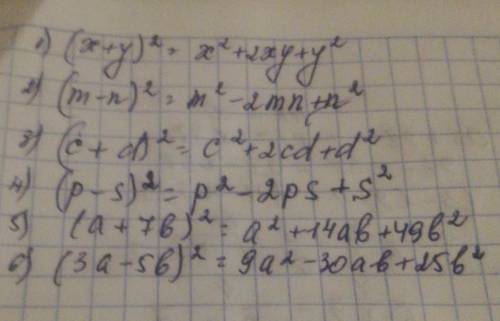 1) (x+y)² = x²+2xy+y²
2) (m-n)² = m²-2mn+n²
3) (c+d)² = c²+2cd+d²
4) (p-s)² = p²-2ps+s²
5) (a+7b)² = a²+14ab+49b²
6) (3a-5b)² = 9a²-30ab+25b²